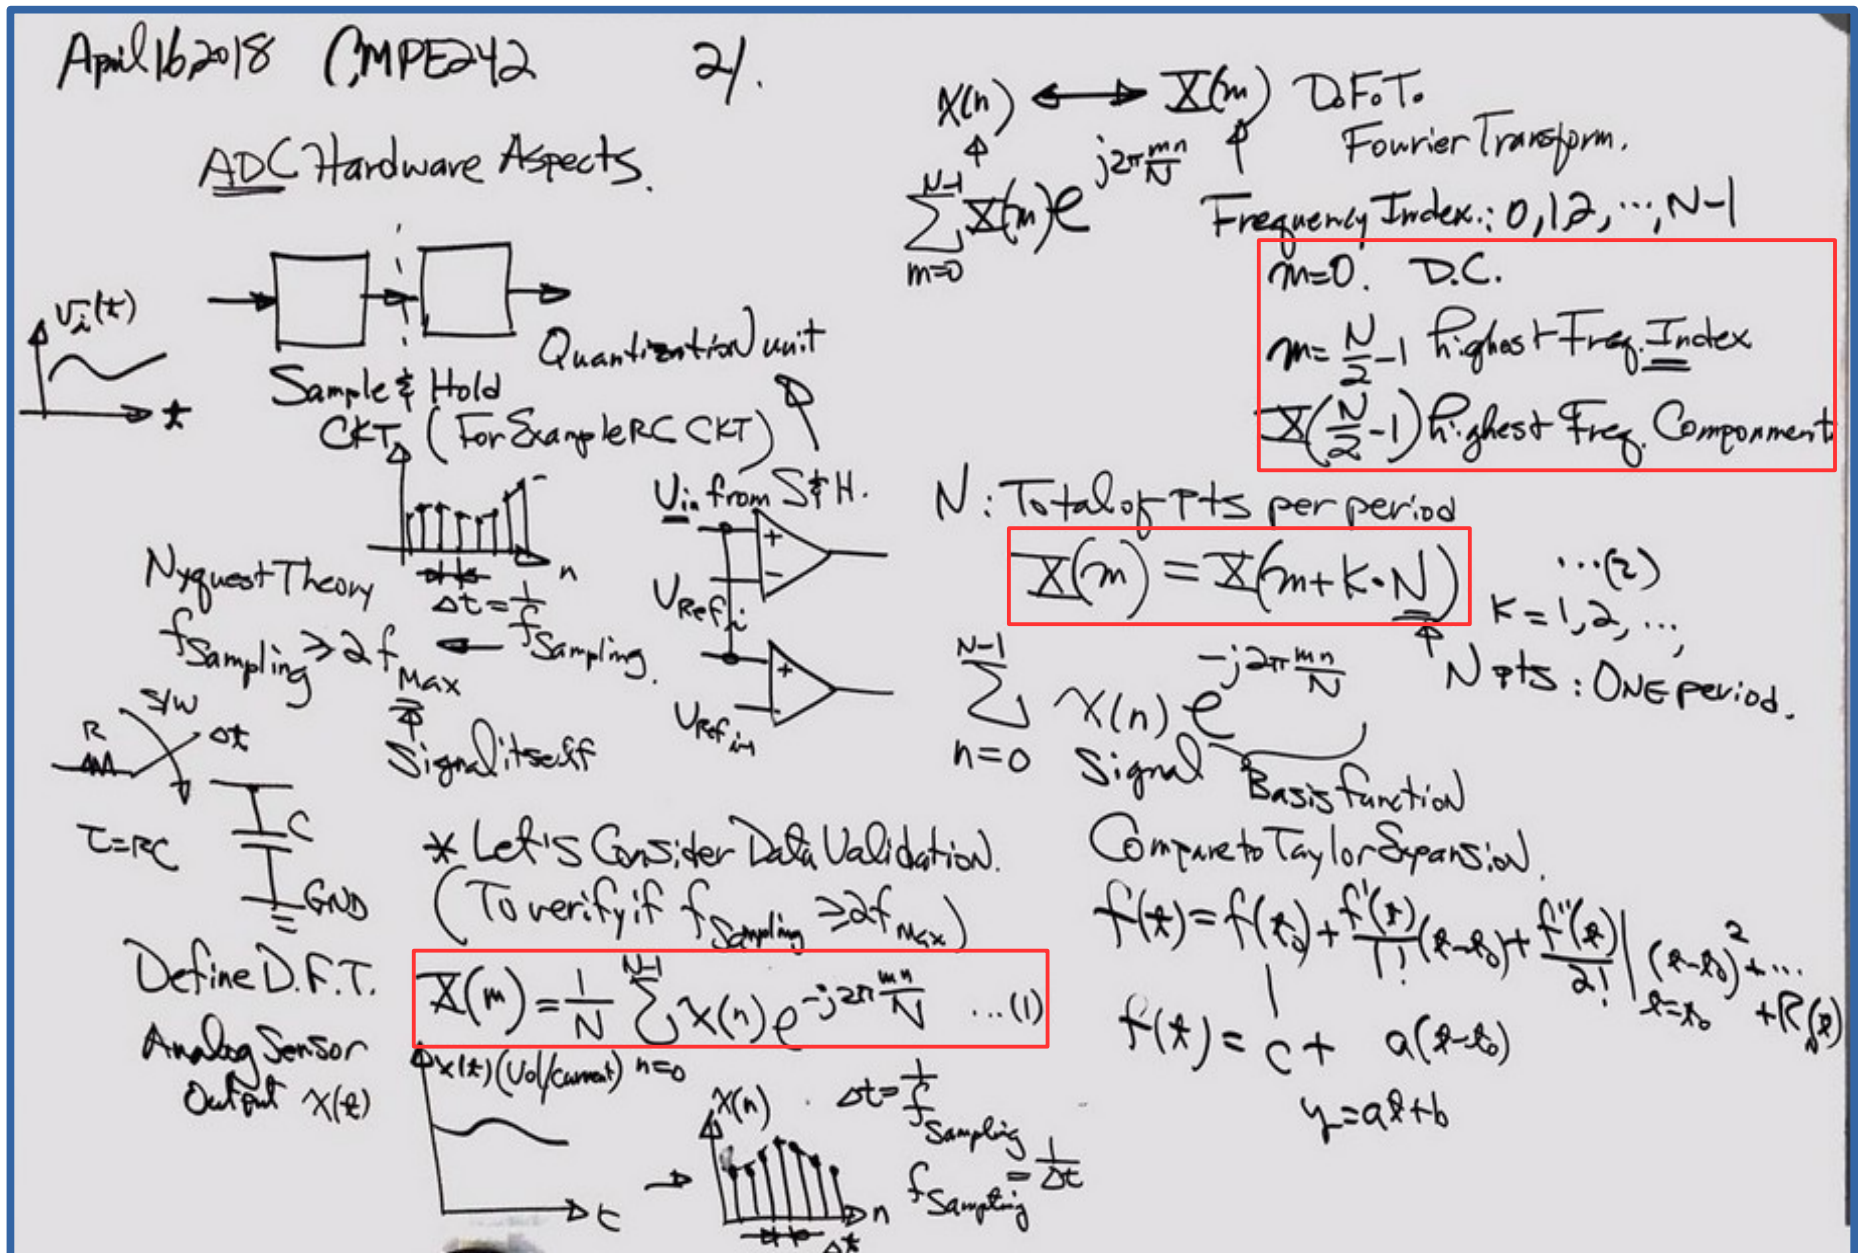 April 16, 2018 CMPE242 21.
ADC Hardware Aspects.
Vi(t)
t
Sample & Hold
CKT (For Example RC CKT)
Quantization unit
n
Δt = 1/fSampling
Nyquest Theory
fSampling ≥ 2 fMax ← fSampling.
Signal itself
Uin from S&H.
+
-
URef i
+
-
URef i-1
R
S/W
Δt
C
τ=RC
GND
* Let's Consider Data Validation.
(To verify if fSampling ≥ 2fMax)
Define D.F.T.
X(m) = 1/N Σ x(n) e^-j2π mn/N ...(1)
N-1
n=0
Analog Sensor
Output x(t)
x(t) (Vol/current)
t
x(n)
n
Δt
Δt = 1/fSampling
fSampling = 1/Δt
x(n) ↔ X(m) D.F.T.
Fourier Transform.
N-1
Σ X(m) e^j2π mn/N
m=0
Frequency Index.: 0,1,2, ..., N-1
m=0. D.C.
m= N/2 -1 highest Freq. Index
X(N/2 -1) highest Freq. Componment
N: Total of pts per period
X(m) = X(m+K·N) ...(2)
K=1,2, ...,
N pts: ONE period.
N-1
Σ x(n) e^-j2π mn/N
n=0
Signal
Basis function
Compare to Taylor Expansion.
f(t) = f(t0) + f'(t)/1! (t-t0) + f''(t)/2! |t=t0 (t-t0)^2 + ...
+ RN(t)
f(t) = c + a(t-t0)
y=at+b